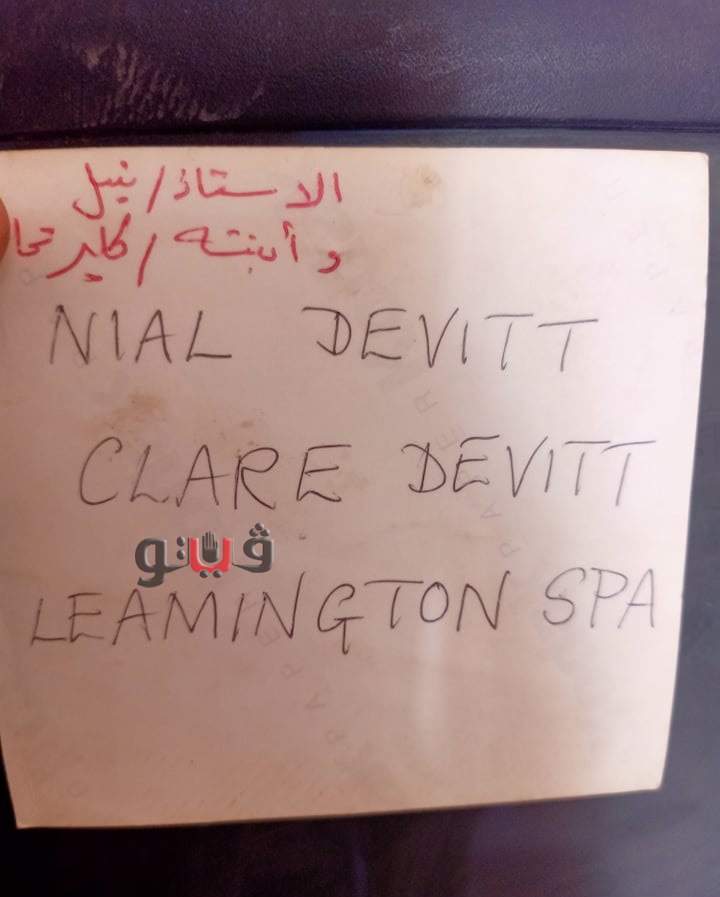 الاستاذ/نيل
و أبنته/كلير
NIAL DEVITT
CLARE DEVITT
ڤيتو
LEAMINGTON SPA